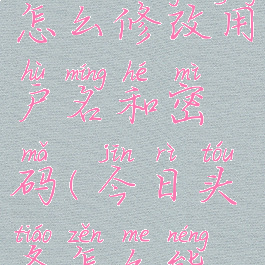 怎么修改用
hù míng hé mì
户名和密
mǎ jīn rì tóu
码(今日头
tiáo zěn me néng
条怎么能